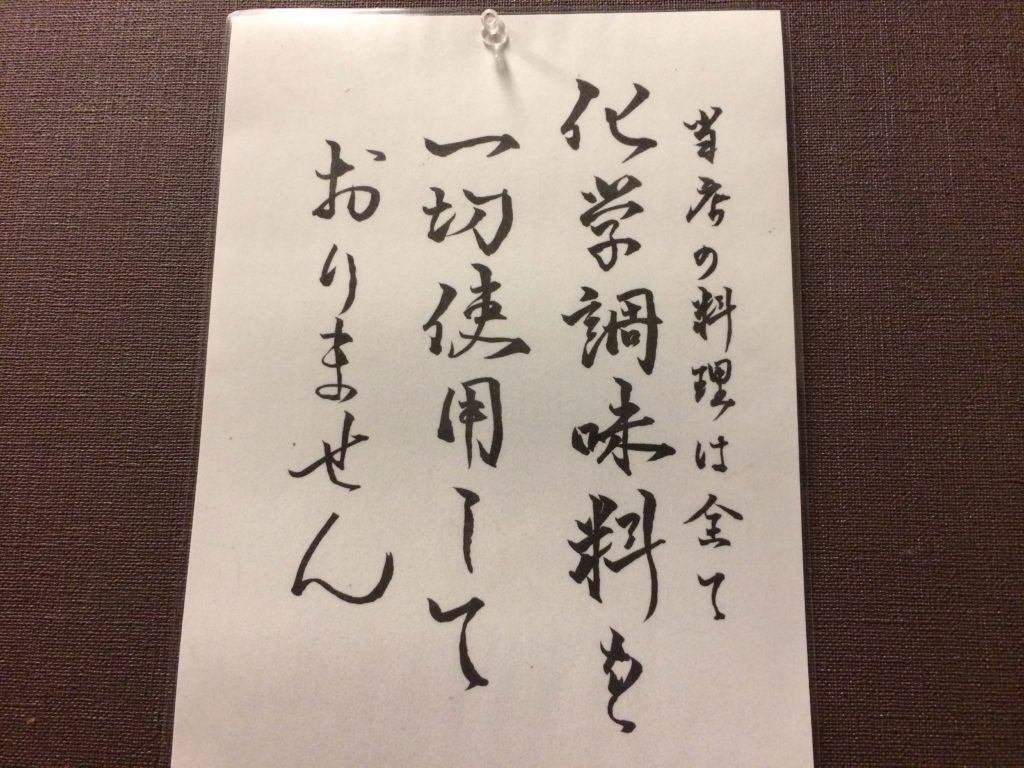 当店の料理は全て
化学調味料を
一切使用して
おりません